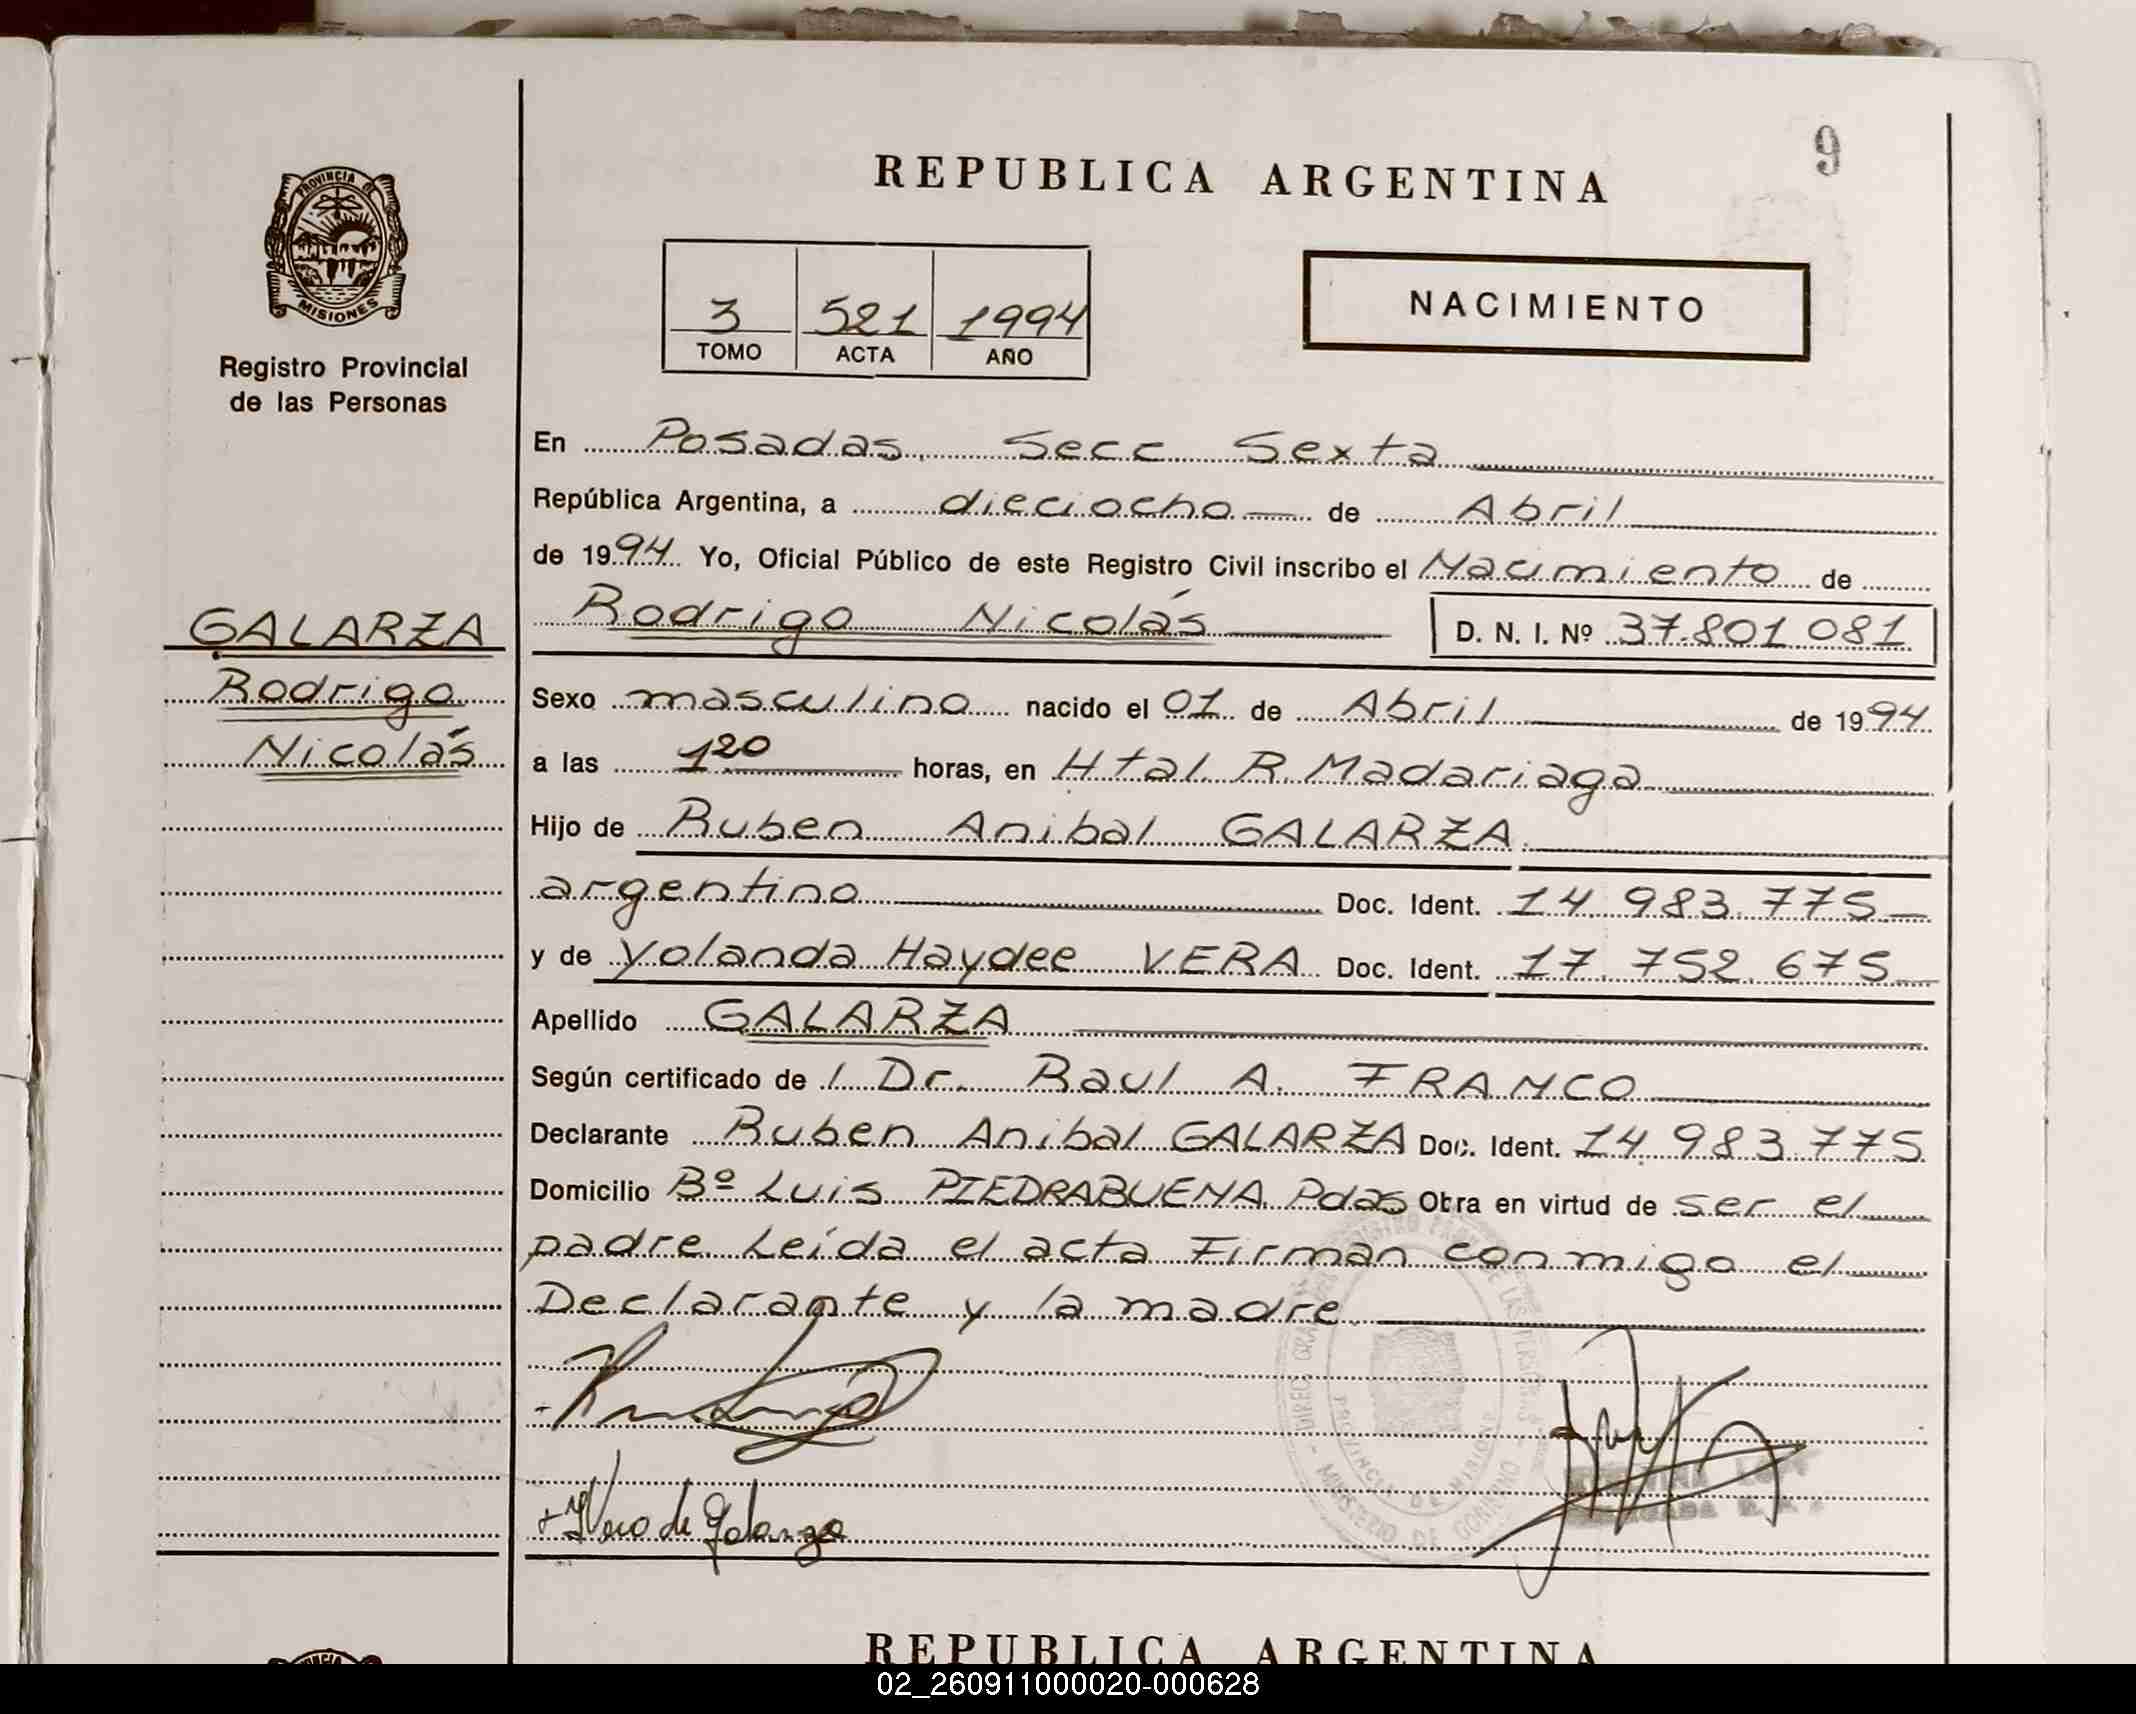 REPUBLICA ARGENTINA
9
PROVINCIA DE
MISIONES
Registro Provincial
de las Personas
3 521 1994
TOMO ACTA AÑO
NACIMIENTO
En Posadas, Secc Sexta
República Argentina, a dieciocho de Abril
de 1994 Yo, Oficial Público de este Registro Civil inscribo el Nacimiento de
Rodrigo Nicolás D. N. I. Nº 37.801 081
GALARZA
Rodrigo
Nicolás
Sexo masculino nacido el 01 de Abril de 1994
a las 1 20 horas, en Htal R. Madariaga
Hijo de Ruben Anibal GALARZA
argentino Doc. Ident. 14.983.775
y de Yolanda Haydee VERA Doc. Ident. 17.752.675
Apellido GALARZA
Según certificado de / Dr. Raul A. FRANCO
Declarante Ruben Anibal GALARZA Doc. Ident. 14.983.775
Domicilio Bº Luis PIEDRABUENA Pdas Obra en virtud de ser el
padre Leída el acta Firman conmigo el
Declarante y la madre
PROVINCIA DE MISIONES
MINISTERIO DE GOBIERNO
Vera de Galarza
REPUBLICA ARGENTINA
02_260911000020-000628